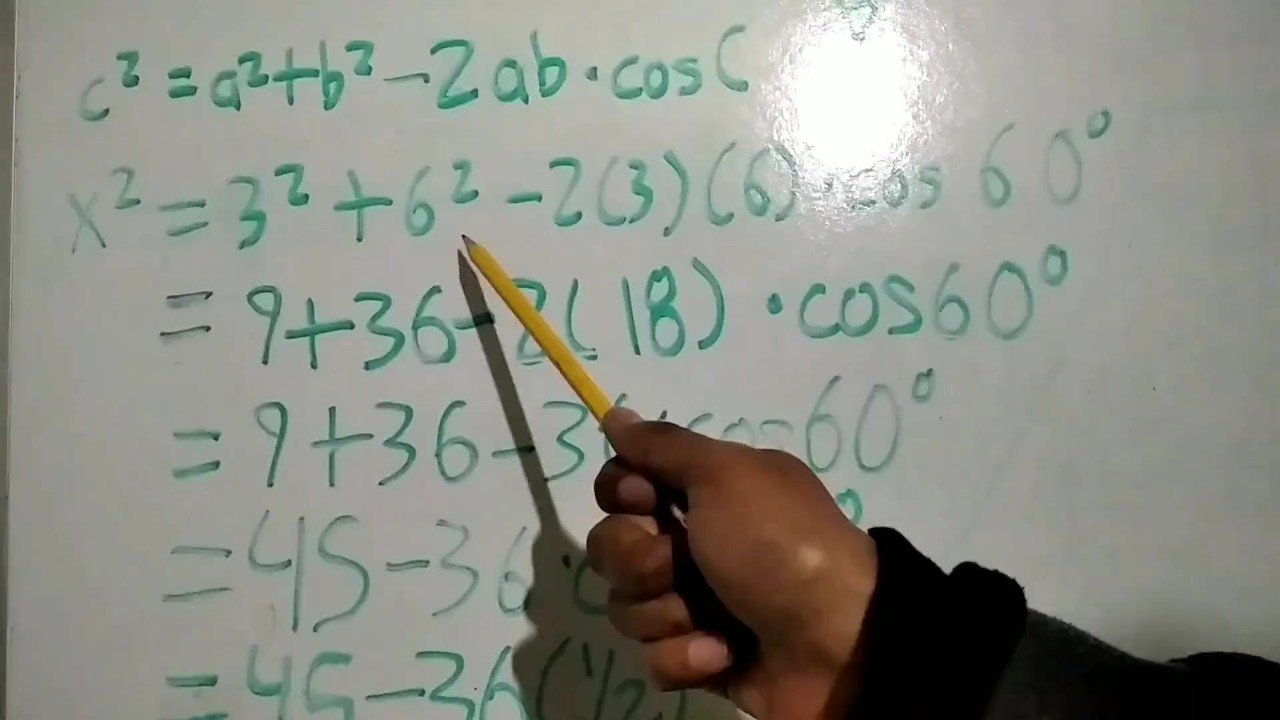 c² = a² + b² - 2ab · cos C
x² = 3² + 6² - 2(3)(6) · cos 60°
= 9 + 36 - 2(18) · cos 60°
= 9 + 36 - 36 · cos 60°
= 45 - 36 ·
= 45 - 36(1/2)